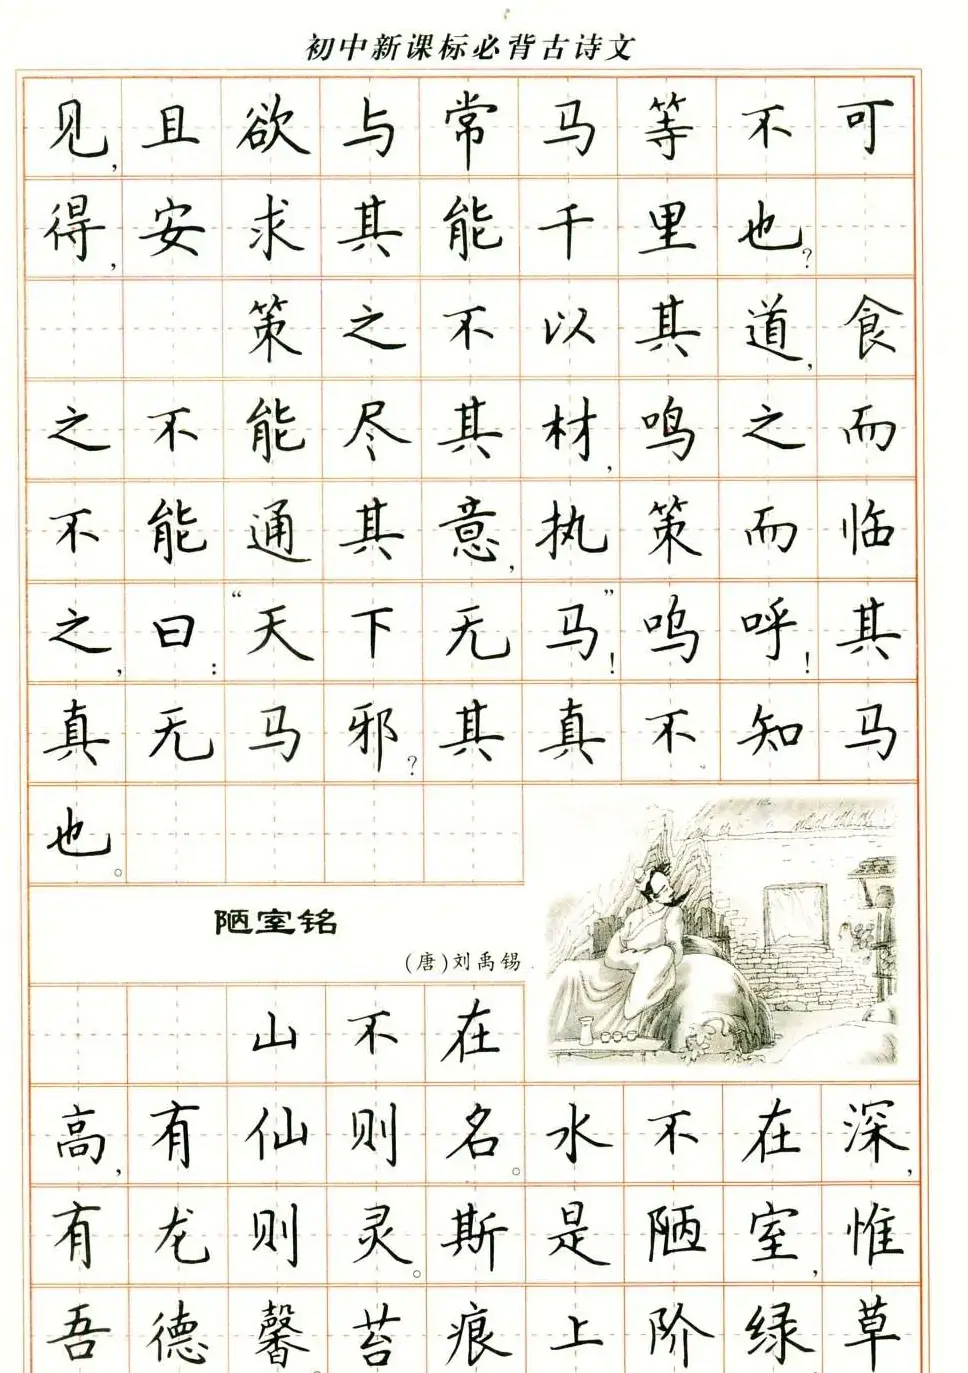 初中新课标必背古诗文
见，且欲与常马等不可
得，安求其能千里也？
策之不以其道，食
之不能尽其材，鸣之而
不能通其意，执策而临
之，曰：“天下无马”！呜呼！其
真无马邪？其真不知马
也。
陋室铭
（唐）刘禹锡
山不在
高，有仙则名。水不在深，
有龙则灵。斯是陋室，惟
吾德馨。苔痕上阶绿草